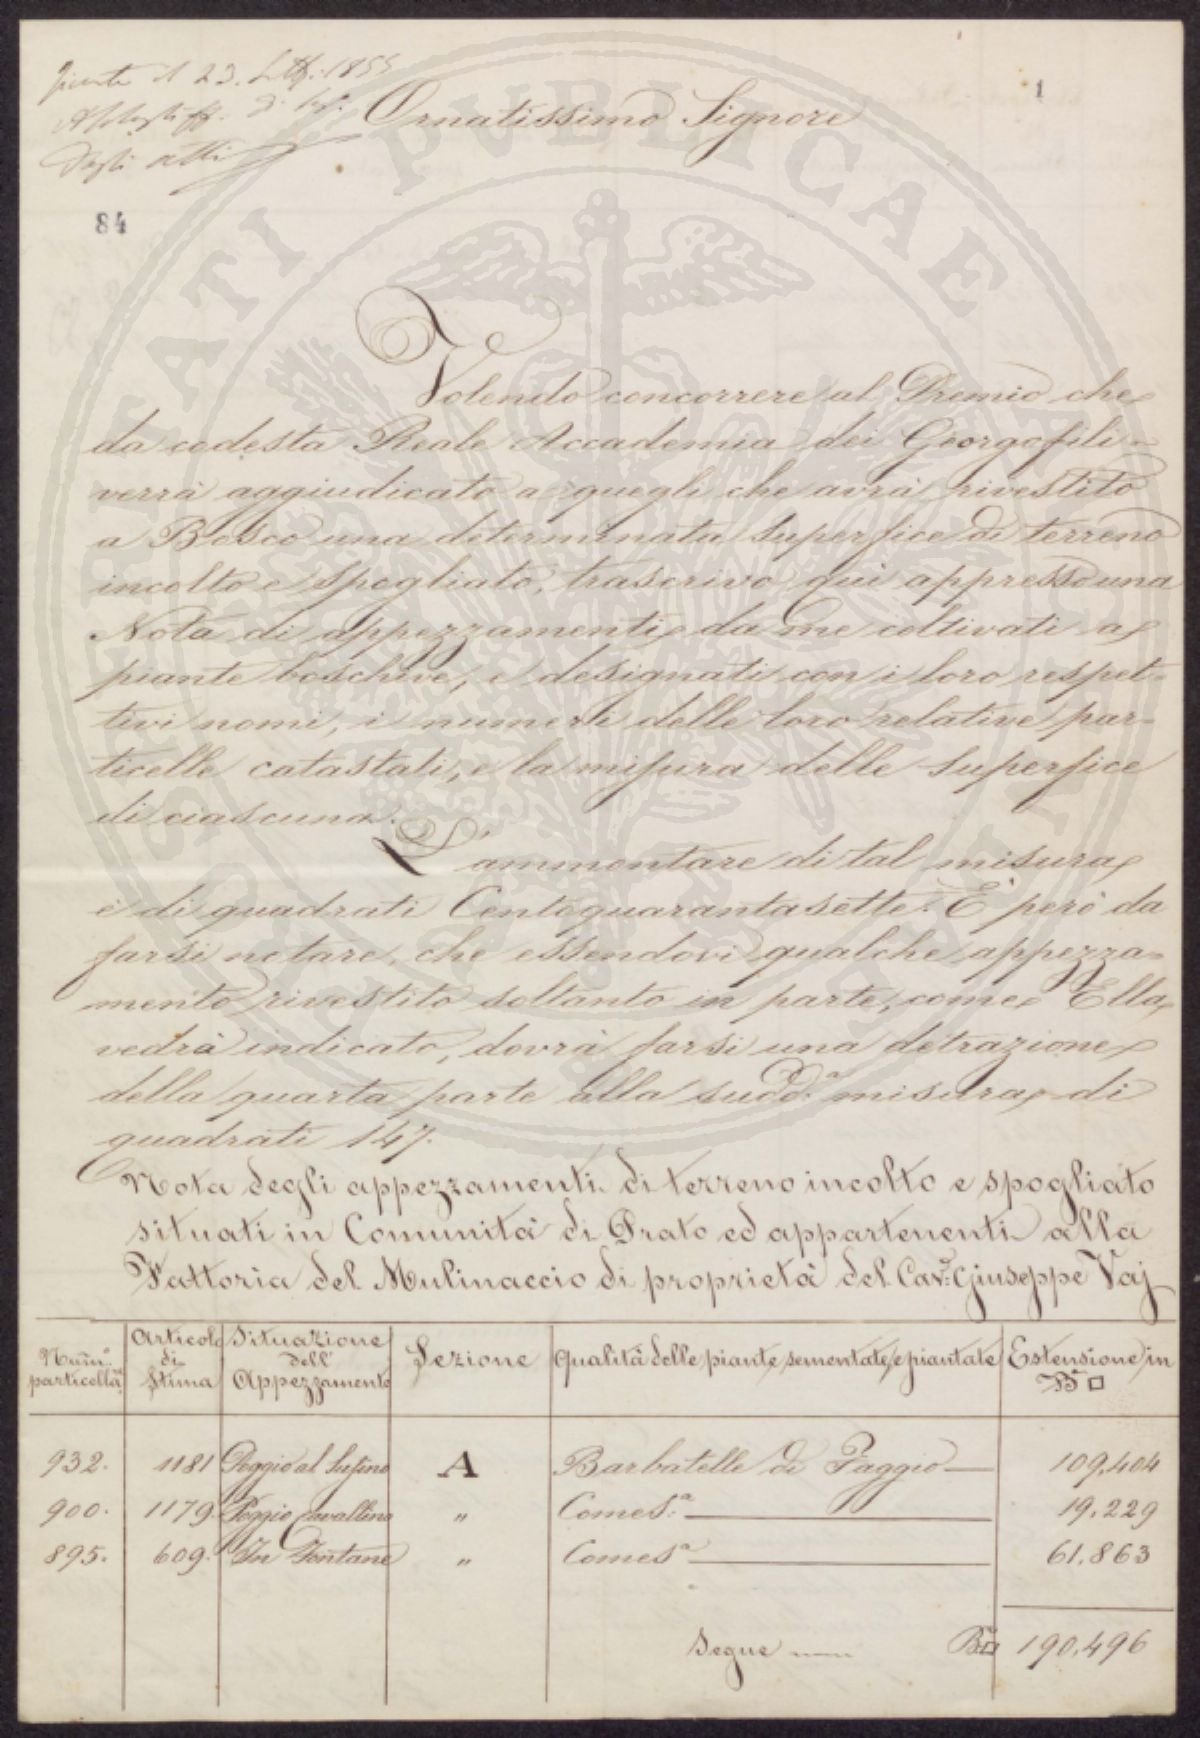 1
23. 1855
Ornatissimo Signore
degli atti
84
PROSPERITATI PUBLICAE AUGENDAE
Volendo concorrere al Premio che
da codesta Reale Accademia dei Georgofili
verrà aggiudicato a quegli che avrà rivestito
a Bosco una determinata superfice di terreno
incolto e spogliato, trascrivo qui appresso una
Nota di appezzamenti da me coltivati a
piante boschive, e designati con i loro respet-
tivi nomi, i numeri delle loro relative par-
ticelle catastali, e la misura delle superfice
di ciascuna.
L'ammontare di tal misura
è di quadrati Centoquarantasette. È però da
farsi notare, che essendovi qualche appezza-
mento rivestito soltanto in parte, come Ella
vedrà indicato, dovrà farsi una detrazione
della quarta parte alla sudd.a misura di
quadrati 147.
Nota degli appezzamenti di terreno incolto e spogliato
situati in Comunità di Prato ed appartenenti alla
Fattoria del Mulinaccio di proprietà del Cav.re Giuseppe Vaj
Num.o particella | Articolo di Stima | Situazione dell' Appezzamento | Sezione | Qualità delle piante sementate, e piantate | Estensione in Ba □
932. 1181 Poggio al A Barbatelle di Faggio 109,404
900. 1179. Poggio Cavallino " Come S.a 19,229
895. 609. In Fontane " Come S.a 61,863
Segue Ba □ 190,496